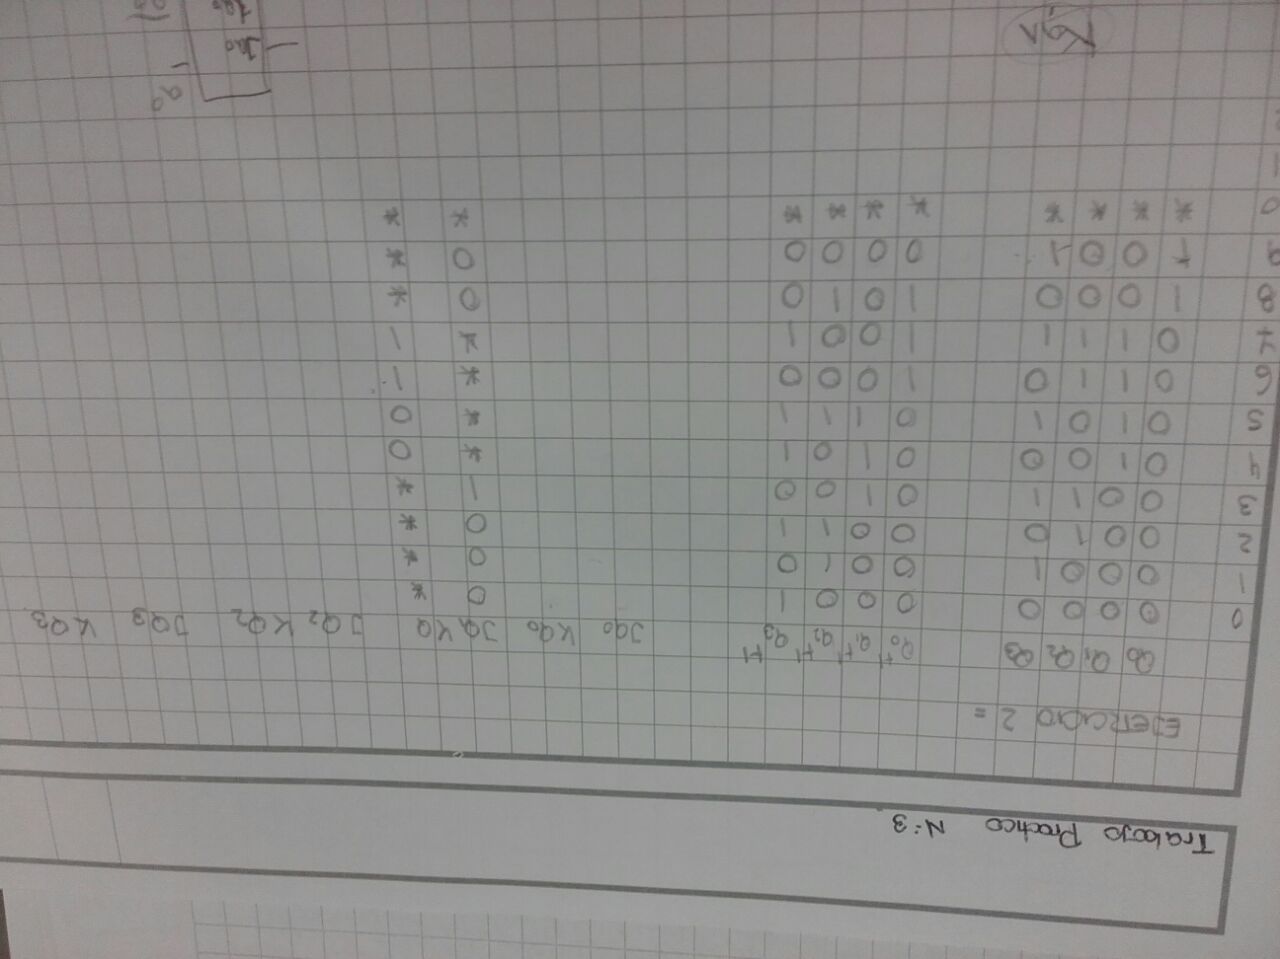 Trabajo Practico N:3
EJERCICIO 2 =
Q0 Q1 Q2 Q3 Q0+1 Q1+1 Q2+1 Q3+1 JQ0 KQ0 JQ1 KQ JQ2 KQ2 JQ3 KQ3
0 0 0 0 0 0 0 0 1 0 *
1 0 0 0 1 0 0 1 0 0 *
2 0 0 1 0 0 0 1 1 0 *
3 0 0 1 1 0 1 0 0 1 *
4 0 1 0 0 0 1 0 1 * 0
5 0 1 0 1 0 1 1 1 * 0
6 0 1 1 0 1 0 0 0 * 1
7 0 1 1 1 1 0 0 1 * 1
8 1 0 0 0 1 0 1 0 0 *
9 1 0 0 1 0 0 0 0 0 *
0 * * * * * * * * * *
1
KQ1
JQ0